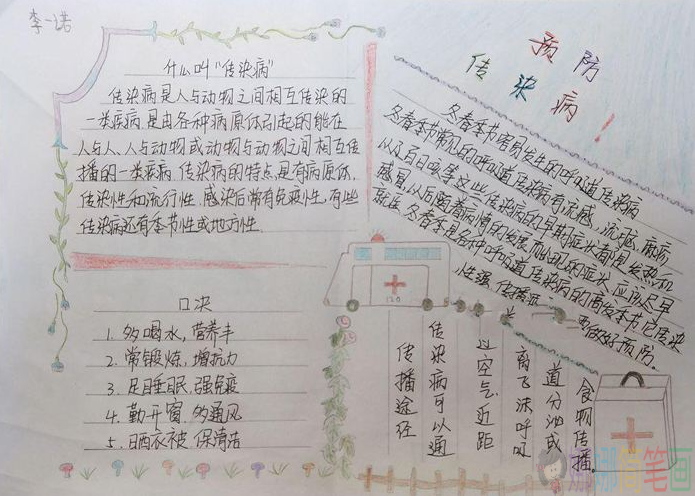 李一诺
什么叫“传染病”
传染病是人与动物之间相互传染的
一类疾病,是由各种病原体引起的能在
人与人、人与动物或动物与动物之间相互传
播的一类疾病,传染病的特点,是有病原体,
传染性和流行性,感染后常有免疫性,有些
传染病还有季节性或地方性.
预防
传染病!
冬春季节容易发生的呼吸道传染病
冬春季节常见的呼吸道传染病有流感,沉
以及百日咳等这些传染病的早期症状都是发热和
感冒,以后随着病情的发展而出现
就医,冬春季是各种呼吸道传染病的高发季节
性强,传播
要做好预防.
120
口决
1.多喝水,营养丰
2.常锻炼,增抗力
3.足睡眠,强免疫
4.勤开窗,多通风
5.晒衣被 保清洁
传播途径
传染病可以通
过空气,近距
离飞沫呼吸
道分泌或
食物传播.
娜娜爱笔画